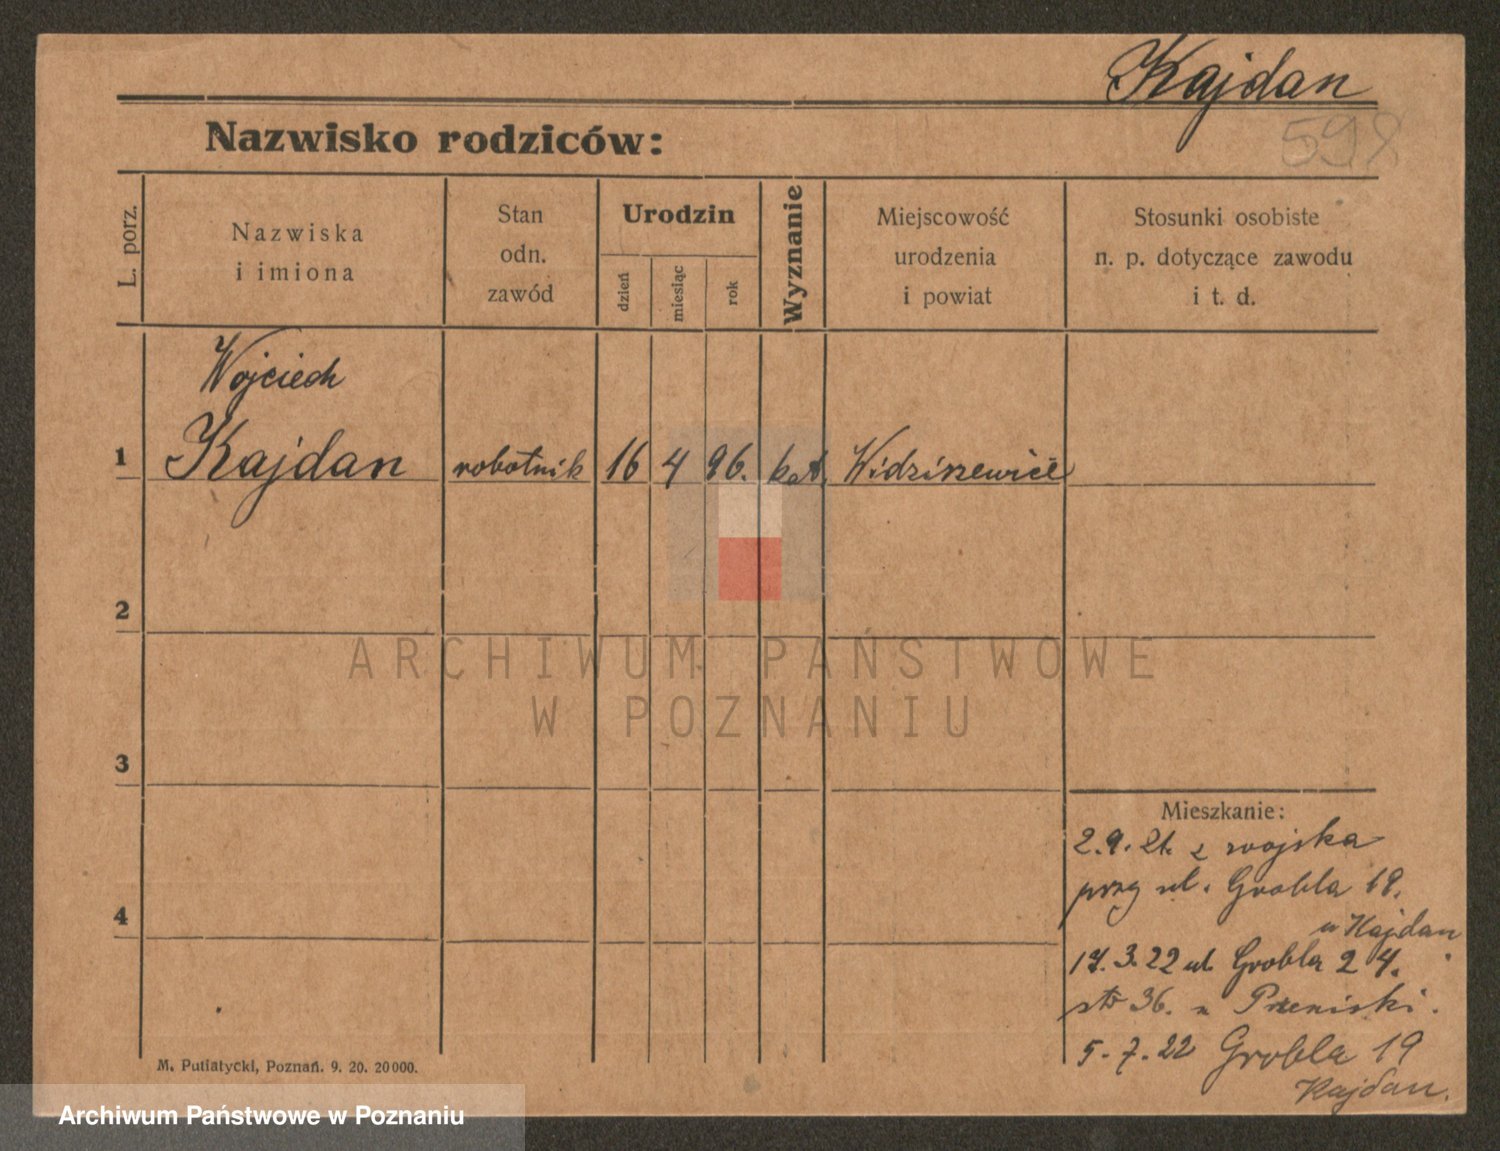 Kajdan
598
Nazwisko rodziców:
L. porz.
Nazwiska
i imiona
Stan
odn.
zawód
Urodzin
dzień
miesiąc
rok
Wyznanie
Miejscowość
urodzenia
i powiat
Stosunki osobiste
n. p. dotyczące zawodu
i t. d.
Wojciech
1 Kajdan robotnik 16 4 96. kat. Widziszewice
2
ARCHIWUM PAŃSTWOWE
W POZNANIU
3
Mieszkanie:
2.9.21. z wojska
przy ul. Grobla 19.
u Kajdan
4
17.3.22 ul. Grobla 24.
36. u
5.7.22 Grobla 19
Kajdan.
M. Putiatycki, Poznań. 9. 20. 20000.
Archiwum Państwowe w Poznaniu